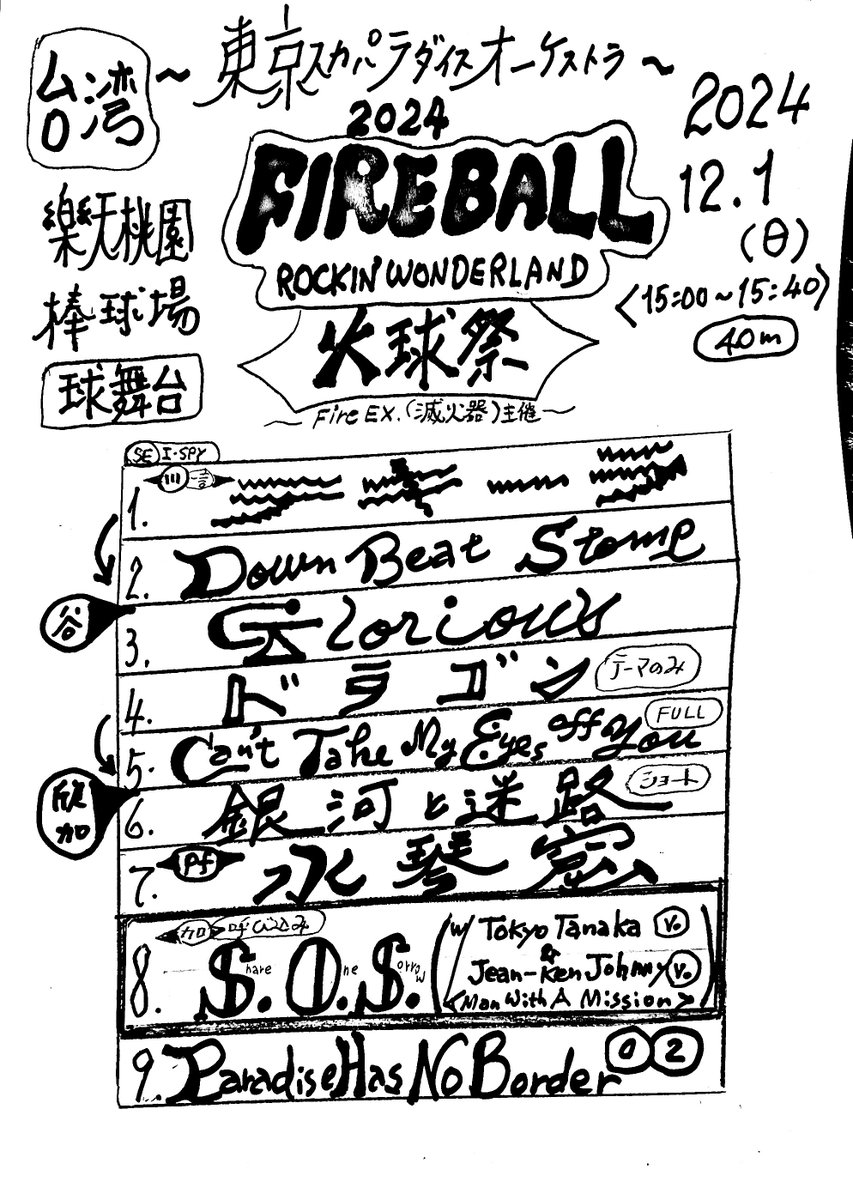 台湾
~東京スカパラダイスオーケストラ~
2024
12.1
(日)
<15:00~15:40>
40m
2024
FIREBALL
ROCKIN' WONDERLAND
火球祭
~Fire EX.(滅火器)主催~
楽天桃園
棒球場
球舞台
SE I-SPY
1.
2. Down Beat Stomp
谷
3. Glorious
4. ドラゴン テーマのみ
5. Can't Take My Eyes off You FULL
欣
加
6. 銀河と迷路 ショート
7. Pf 水琴窟
加 呼び込み
8. S.O.S.
Share One Sorrow
(w/ Tokyo Tanaka Vo
&
Jean-Ken Johnny Vo
<Man With A Mission>)
9. Paradise Has No Border 0 2